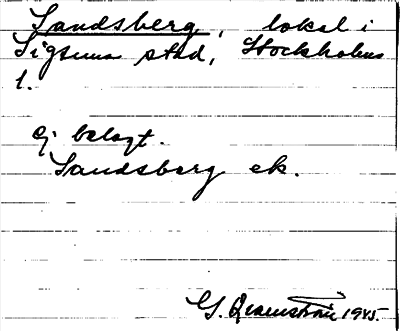 Sandsberg, lokal i
Sigtuna stad, Stockholms
l.
ej belagt.
Sandsberg ek.
G. Qvarnström 1945.